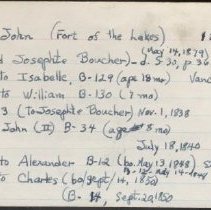 John (Fort of the Lakes)
(May 14, 1879)
d Josephte Boucher) - d. S-30, p 36
to Isabelle, B-129 (age 18 mo) Vanc
to William B-130 (? mo)
3 (To Josephte Boucher) Nov. 1, 1838
John (II) B-34 (age 8 mo)
July 18, 1840
to Alexander B-12 (bo. May 13, 1848) S
B-12 - May 14-1848
to Charles (bo/sept/14, 1850)
B- , Sept. 20, 1850